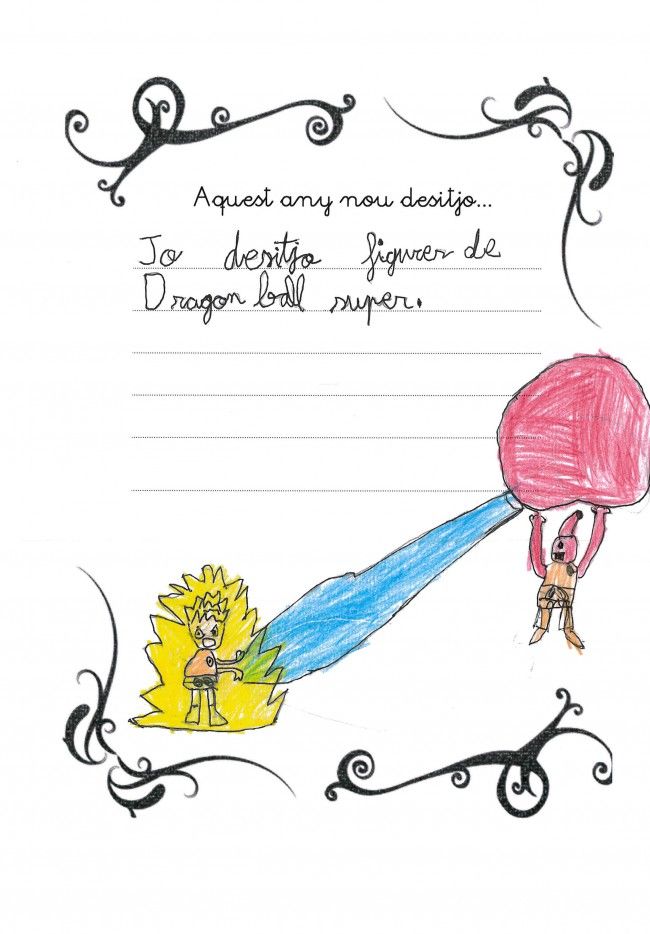 Aquest any nou desitjo...
Jo desitjo figures de
Dragon ball super.